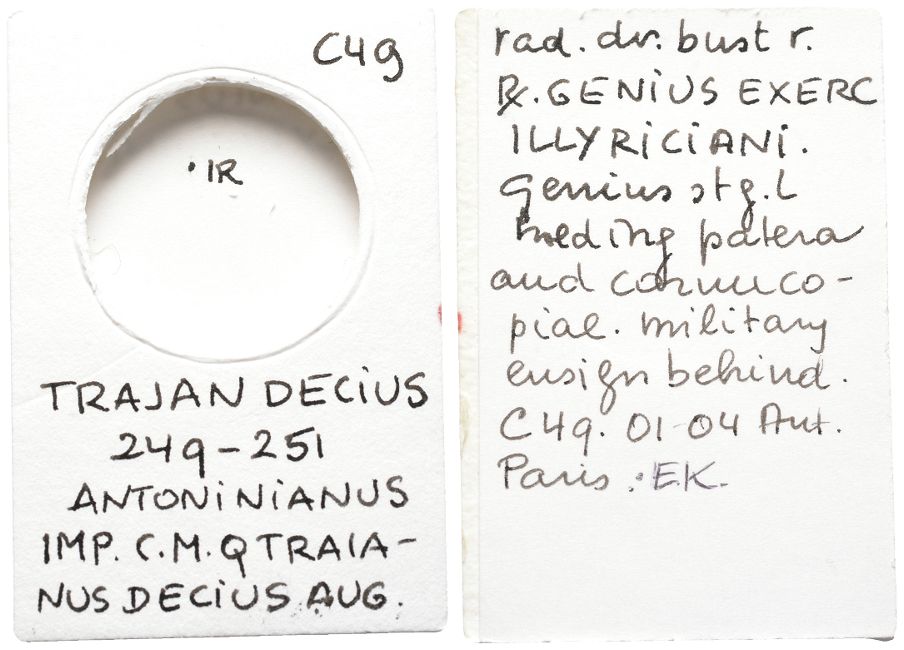 C49
·IR
TRAJAN DECIUS
249-251
ANTONiNiANUS
IMP. C.M. Q TRAIA-
NUS DECiUS AUG.
rad. dr. bust r.
℞. GENiUS EXERC
ILLYRiCiANi.
Genius st g. L
holding patera
and cornuco-
piae. military
ensign behind.
C 49. 01-04 Ant.
Paris. ·EK.